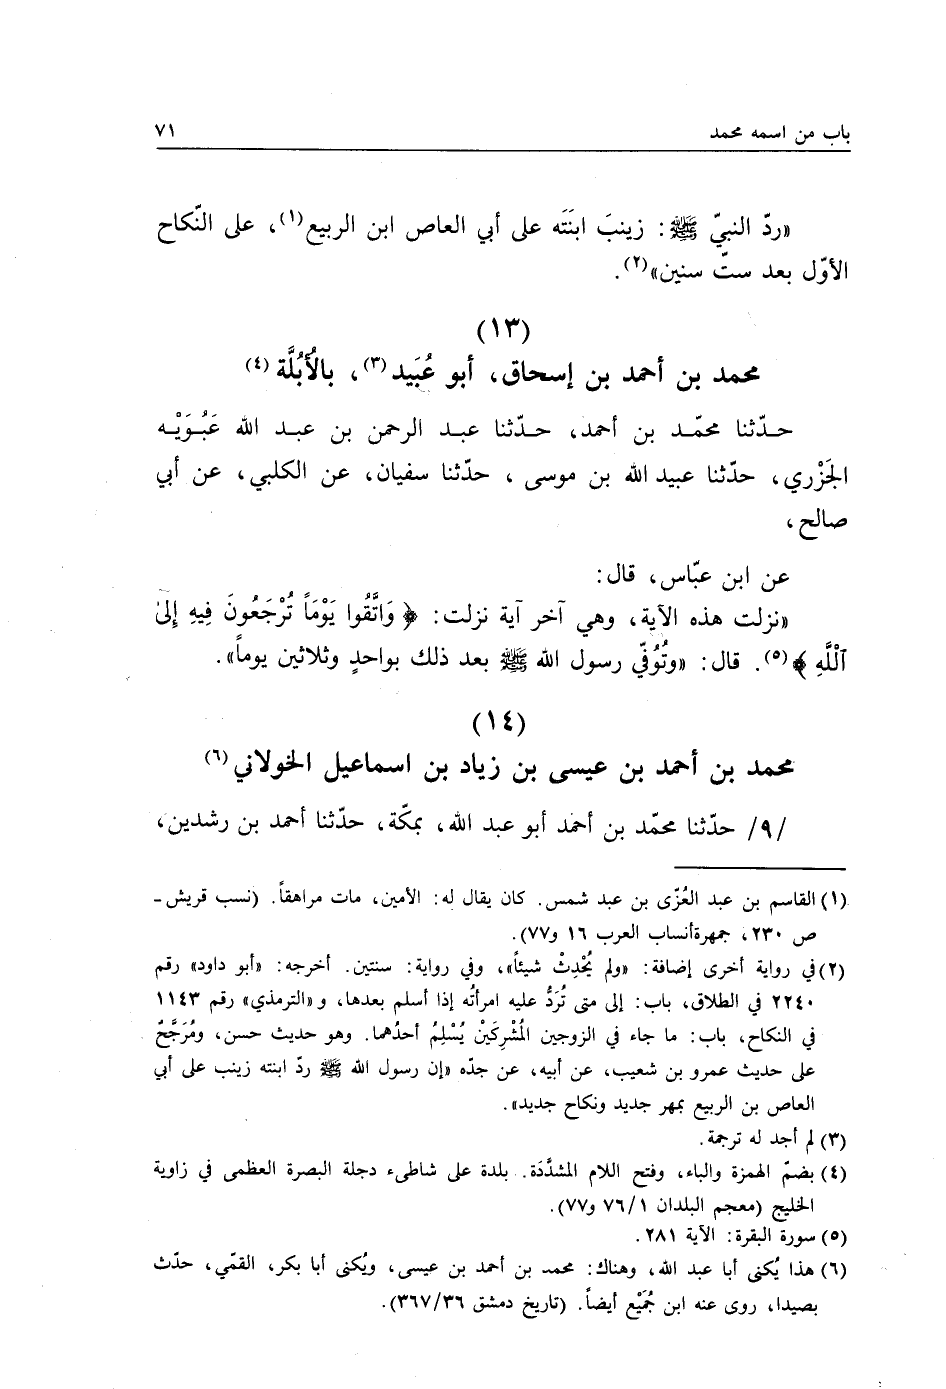 باب من اسمه محمد ٧١
«ردّ النبيّ ﷺ: زينبَ ابنَتَه على أبي العاص ابن الربيع(١)، على النّكاح
الأوّل بعد ستّ سنين»(٢).
(١٣)
محمد بن أحمد بن إسحاق، أبو عُبَيد(٣)، بالأُبُلَّة(٤)
حـدّثنا محمّـد بن أحمد، حـدّثنا عبـد الرحمن بن عبـد الله عَبُـوَيْـه
الجَزْري، حدّثنا عبيد الله بن موسى، حدّثنا سفيان، عن الكلبي، عن أبي
صالح،
عن ابن عبّاس، قال:
«نزلت هذه الآية، وهي آخر آية نزلت: ﴿ وَاتَّقُوا يَوْمَاً تُرْجَعُونَ فِيهِ إِلَىٰ
ٱللَّهِ ﴾(٥). قال: «وتُوُفّي رسول الله ﷺ بعد ذلك بواحدٍ وثلاثين يوماً».
(١٤)
محمد بن أحمد بن عيسى بن زياد بن اسماعيل الخولاني(٦)
/٩/ حدّثنا محمّد بن أحمَد أبو عبد الله، بمكّة، حدّثنا أحمد بن رشدين،
(١) القاسم بن عبد العُزّى بن عبد شمس. كان يقال له: الأمين، مات مراهقاً. (نسب قريش ـ
ص ٢٣٠، جمهرةأنساب العرب ١٦ و٧٧).
(٢) في رواية أخرى إضافة: «ولم يُحْدِثْ شيئاً»، وفي رواية: سنتين. أخرجه: «أبو داود» رقم
٢٢٤٠ في الطلاق، باب: إلى متى تُرَدُّ عليه امرأتُه إذا أسلم بعدها، و«الترمذي» رقم ١١٤٣
في النكاح، باب: ما جاء في الزوجين المُشْرِكَيْن يُسْلِمُ أحدُهما. وهو حديث حسن، ومُرَجَّحٌ
على حديث عمرو بن شعيب، عن أبيه، عن جدّه «إن رسول الله ﷺ ردّ ابنته زينب على أبي
العاص بن الربيع بمهر جديد ونكاح جديد».
(٣) لم أجد له ترجمة.
(٤) بضمّ الهمزة والباء، وفتح اللام المشدَّدَة. بلدة على شاطىء دجلة البصرة العظمى في زاوية
الخليج (معجم البلدان ٧٦/١ و٧٧).
(٥) سورة البقرة: الآية ٢٨١.
(٦) هذا يُكنى أبا عبد الله، وهناك: محمد بن أحمد بن عيسى، ويُكنى أبا بكر، القمّي، حدّث
بصيدا، روى عنه ابن جُمَيْع أيضاً. (تاريخ دمشق ٣٦٧/٣٦).